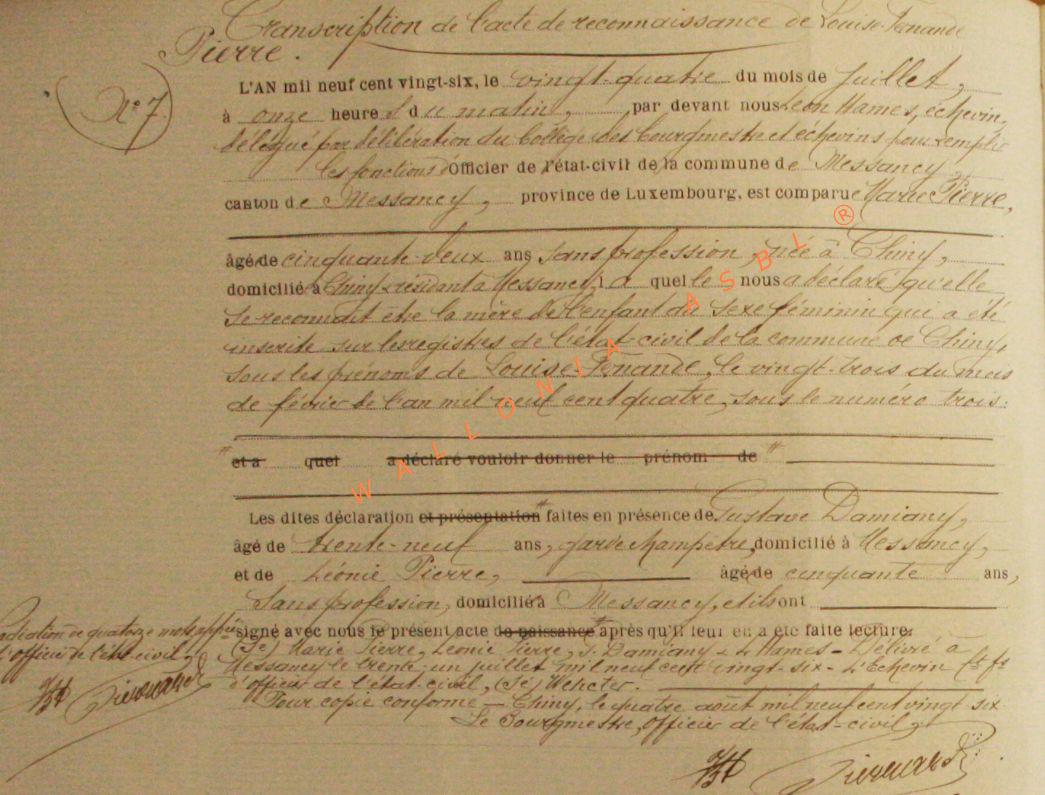 Transcription de l'acte de reconnaissance de Louise-Fernande
Pierre.
N° 7
L'AN mil neuf cent vingt-six, le vingt-quatre du mois de Juillet,
à onze heures du matin, par devant nous Léon Hames, échevin,
délégué par délibération du Collège des bourgmestre et échevins pour remplir
les fonctions d'Officier de l'état-civil de la commune de Messancy
canton de Messancy, province de Luxembourg, est comparue Marie Pierre,
âgé de cinquante-deux ans sans profession, née à Chiny,
domicilié à Chiny résidant à Messancy, laquelle nous a déclaré qu'elle
se reconnait être la mère de l'enfant du sexe féminin qui a été
inscrite sur les registres de l'état-civil de la commune de Chiny,
sous les prénoms de Louise-Fernande, le vingt-trois du mois
de février de l'an mil neuf cent quatre, sous le numéro trois.
et a quel a déclaré vouloir donner le prénom de
Les dites déclaration et présentation faites en présence de Gustave Damiany,
âgé de trente-neuf ans, garde champêtre, domicilié à Messancy,
et de Léonie Pierre, âgé de cinquante ans,
sans profession, domicilié à Messancy, et ils ont
signé avec nous le présent acte de naissance après qu'il leur en a été faite lecture.
(Sé) Marie Pierre, Léonie Pierre, G. Damiany - L. Hames - Délivré à
Messancy le trente-un juillet mil neuf cent vingt-six - L'Echevin ff
d'officier de l'état-civil, (Sé)
Pour copie conforme - Chiny, le quatre août mil neuf cent vingt-six
Le Bourgmestre, officier de l'état-civil,
radiation de quatorze mots
l'officier de l'état-civil,
WALLONIA ASBL ®